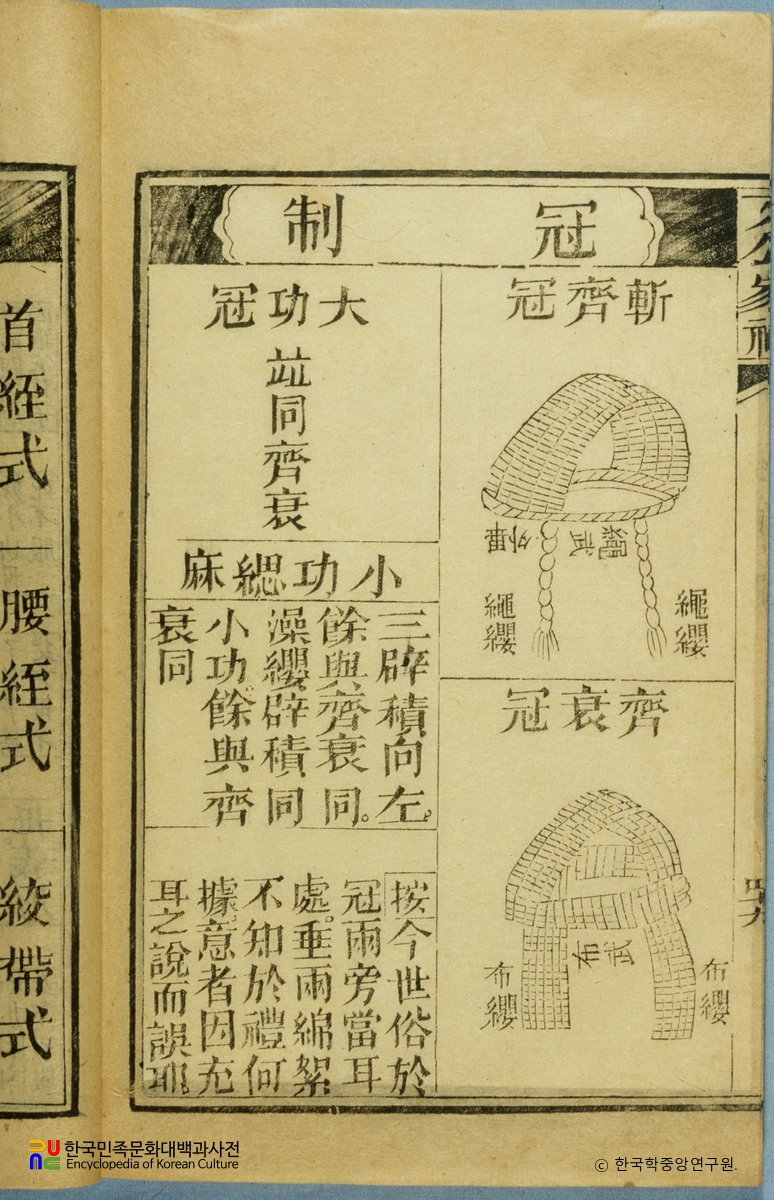 家
冠制
斬齊冠
外畢
繩武
繩纓
繩纓
齊衰冠
布武
布纓
布纓
大功冠
竝同齊衰
小功緦麻
三辟積向左。
餘與齊衰同。
澡纓辟積同
小功。餘與齊
衰同
按今世俗於
冠兩旁當耳
處。垂兩綿絮
不知於禮何
據。意者因充
耳之說而誤耶
首絰式
腰絰式
絞帶式
한국민족문화대백과사전
Encyclopedia of Korean Culture
© 한국학중앙연구원.